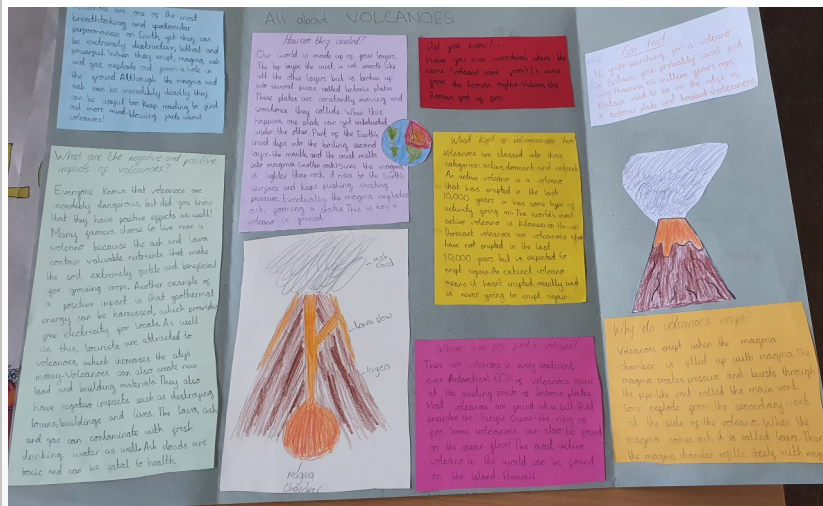 All about VOLCANOES
are one of the most
breathtaking and spectacular
performances on Earth, yet they can
be extremely destructive, lethal and
powerful. When they erupt, magma, ash
and gas explode out from a hole in
the ground. Although the magma and
ash can be incredibly deadly they
can be useful too. Keep reading to find
out more mind-blowing facts about
volcanoes!
What are the negative and positive
impacts of volcanoes?
Everyone knows that volcanoes are
incredibly dangerous, but did you know
that they have positive effects as well!
Many farmers choose to live near a
volcano because the ash and lava
contain valuable nutrients that make
the soil extremely fertile and beneficial
for growing crops. Another example of
a positive impact is that geothermal
energy can be harnessed, which provides
free electricity for locals. As well
as this, tourists are attracted to
volcanoes, which increases the citys
money. Volcanoes can also create new
land and building materials. They also
have negative impacts such as destroying
towns, buildings and lives. The lava, ash
and gas can contaminate with fresh
drinking water as well. Ash clouds are
toxic and can be fatal to health.
How are they created?
Our world is made up of four layers.
The top layer, the crust, is not smooth like
all the other layers but is broken up
into several pieces called tectonic plates.
These plates are constantly moving and
sometimes they collide. When this
happens one plate can get subducted
under the other. Part of the Earth's
crust dips into the boiling second
layer, the mantle, and the crust melts
into magma (molten rock). Since the magma
is lighter than rock, it rises to the Earth's
surface and keeps pushing, creating
pressure. Eventually the magma explodes
out, forming a crater. This is how a
volcano is formed.
ash
cloud
lava flow
layers
magma
chamber
Did you know?...
Have you ever wondered where the
name Volcano came from? It came
from the Roman myths. Vulcan, the
Roman god of fire.
What kind of volcanoes are there?
Volcanoes are classed into three
categories, active, dormant and extinct.
An active volcano is a volcano
that has erupted in the last
10,000 years or has some type of
activity going on. The world's most
active volcano is Kilauea on Hawaii.
Dormant volcanoes are volcanoes that
have not erupted in the last
10,000 years but is expected to
erupt again. An extinct volcano
means it hasn't erupted recently and
is never going to erupt again.
Where can you find a volcano?
There are volcanoes in every continent
even Antarctica! 60% of volcanoes occur
at the meeting points of tectonic plates.
Most volcanoes are found at a belt that
encircles the Pacific Ocean: the ring of
fire. Some volcanoes can also be found
on the ocean floor! The most active
volcano in the world can be found
on the island Hawaii.
Fun Fact
If your searching for a volcano
in Britain, you probably wont find
any. However, 60 million years ago,
Britain used to be on the edge of
a tectonic plate and had volcanoes
Why do volcanoes erupt?
Volcanoes erupt when the magma
chamber is filled up with magma. The
magma creates pressure and bursts through
the pipe-like vent called the main vent.
Some explode from the secondary vent
at the side of the volcano. When the
magma comes out, it is called lava. Then
the magma chamber refills slowly with mag